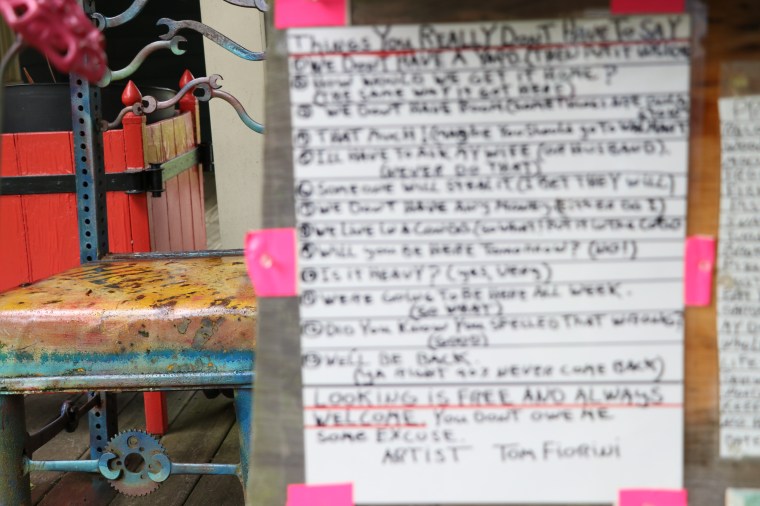 THINGS YOU REALLY DON'T HAVE TO SAY
WE DON'T HAVE A YARD (THEN PUT IT INSIDE
HOW WOULD WE GET IT HOME?
(THE SAME WAY IT GOT HERE)
WE DON'T HAVE ROOM (SOME THINGS ARE
THAT MUCH! (MAYBE YOU SHOULD GO TO WALMART
I'LL HAVE TO ASK MY WIFE (OR HUSBAND).
(NEVER DO THAT)
SOMEONE WILL STEAL IT (I BET THEY WILL)
WE DON'T HAVE ANY MONEY (EITHER DO I)
WE LIVE IN A CONDO (SO WHAT) PUT IT IN THE CONDO
WILL YOU BE HERE TOMORROW? (NO!)
IS IT HEAVY? (YES, VERY)
WE'RE GOING TO BE HERE ALL WEEK.
(SO WHAT)
DID YOU KNOW YOU SPELLED THAT WRONG?
(GOOD)
WE'LL BE BACK.
(YA RIGHT 90% NEVER COME BACK)
LOOKING IS FREE AND ALWAYS
WELCOME. YOU DON'T OWE ME
SOME EXCUSE.
ARTIST TOM FIORINI